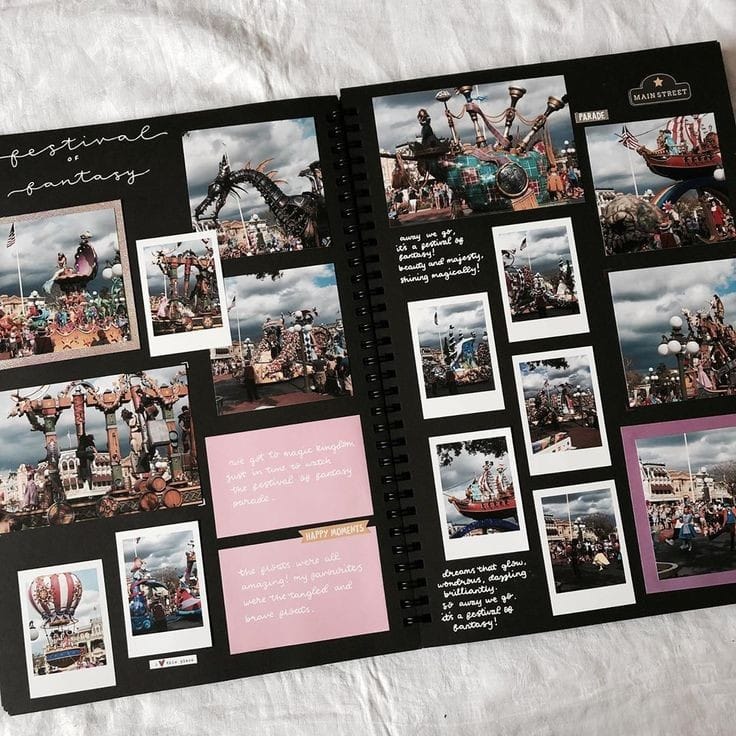 festival
of
fantasy
we got to magic kingdom
just in time to watch
the festival of fantasy
parade.
HAPPY MOMENTS
the floats were all
amazing! my favourites
were the tangled and
brave floats.
I ♥ this place
MAIN STREET
PARADE
away we go,
it's a festival of
fantasy!
beauty and majesty,
shining magically!
dreams that glow,
wondrous, dazzling
brilliantly.
so away we go,
it's a festival of
fantasy!